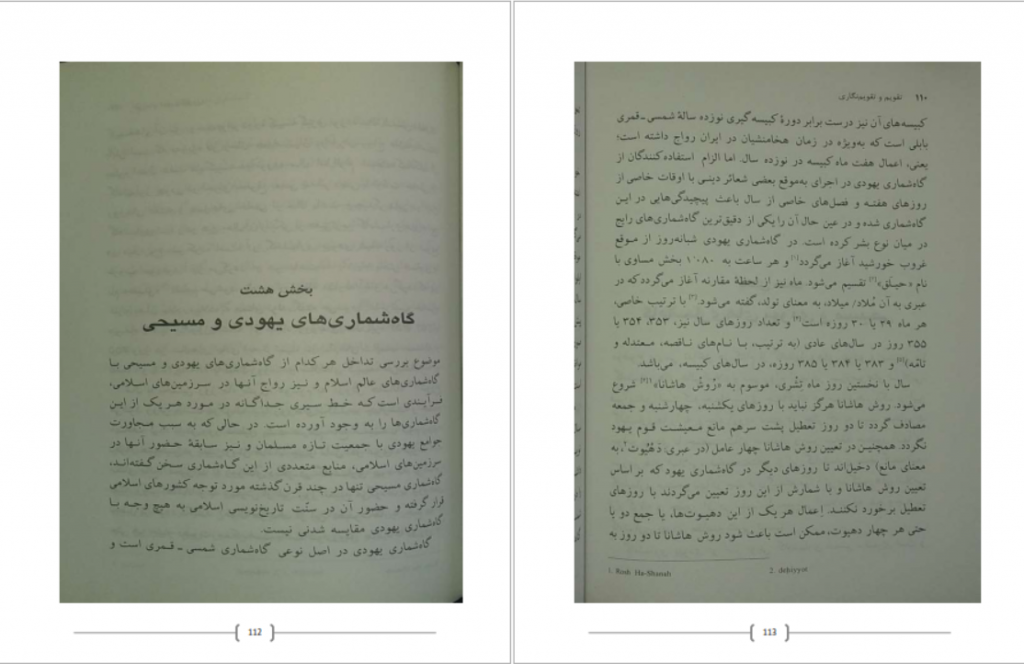 بخش هشت
گاه‌شماری‌های یهودی و مسیحی
موضوع بررسی تداخل هر کدام از گاه‌شماری‌های یهودی و مسیحی با
گاه‌شماری‌های عالم اسلام و نیز رواج آنها در سرزمین‌های اسلامی،
فرآیندی است که خط سیری جداگانه در مورد هر یک از این
گاه‌شماری‌ها را به وجود آورده است. در حالی که به سبب مجاورت
جوامع یهودی با جمعیت تازه مسلمان و نیز سابقهٔ حضور آنها در
سرزمین‌های اسلامی، منابع متعددی از این گاه‌شماری سخن گفته‌اند،
گاه‌شماری مسیحی تنها در چند قرن گذشته مورد توجه کشورهای اسلامی
قرار گرفته و حضور آن در سنّت تاریخ‌نویسی اسلامی به هیچ وجه با
گاه‌شماری یهودی مقایسه شدنی نیست.
گاه‌شماری یهودی در اصل نوعی گاه‌شماری شمسی ـ قمری است و
112
۱۱۰ تقویم و تقویم‌نگاری
کبیسه‌های آن نیز درست برابر دورهٔ کبیسه‌گیری نوزده سالهٔ شمسی ـ قمری
بابلی است که به‌ویژه در زمان هخامنشیان در ایران رواج داشته است؛
یعنی، اعمال هفت ماه کبیسه در نوزده سال. اما الزام استفاده‌کنندگان از
گاه‌شماری یهودی در اجرای به‌موقع بعضی شعائر دینی با اوقات خاصی از
روزهای هفته و فصل‌های خاصی از سال باعث پیچیدگی‌هایی در این
گاه‌شماری شده و در عین حال آن را یکی از دقیق‌ترین گاه‌شماری‌های رایج
در میان نوع بشر کرده است. در گاه‌شماری یهودی شبانه‌روز از موقع
غروب خورشید آغاز می‌گردد[۱] و هر ساعت به ۱۰۸۰ بخش مساوی با
نام «حِیلَق»[۲] تقسیم می‌شود. ماه نیز از لحظهٔ مقارنه آغاز می‌گردد که در
عبری به آن مُلاد/ میلاد، به معنای تولد، گفته می‌شود.[۳] با ترتیب خاصی،
هر ماه ۲۹ یا ۳۰ روزه است[۴] و تعداد روزهای سال نیز، ۳۵۳، ۳۵۴ یا
۳۵۵ روز در سال‌های عادی (به ترتیب، با نام‌های ناقصه، معتدله و
تامّه)[۵] و ۳۸۳ یا ۳۸۴ یا ۳۸۵ روزه، در سال‌های کبیسه، می‌باشد.
سال با نخستین روز ماه تشری، موسوم به «رُوشْ هاشانا» شروع
می‌شود. روش هاشانا هرگز نباید با روزهای یکشنبه، چهارشنبه و جمعه
مصادف گردد تا دو روز تعطیل پشت سرهم مانع معیشت قوم یهود
نگردد. همچنین در تعیین روش هاشانا چهار عامل (در عبری: دَهْیُوت، به
معنای مانع) دخیل‌اند تا روزهای دیگر در گاه‌شماری یهود که بر اساس
تعیین روش هاشانا و یا شمارش از این روز تعیین می‌گردند با روزهای
تعطیل برخورد نکنند. اِعمال هر یک از این دهیوت‌ها، یا جمع دو یا
حتی هر چهار دهیوت، ممکن است باعث شود روش هاشانا تا دو روز به
1. Rosh Ha-Shanah 2. deḥiyyot
113